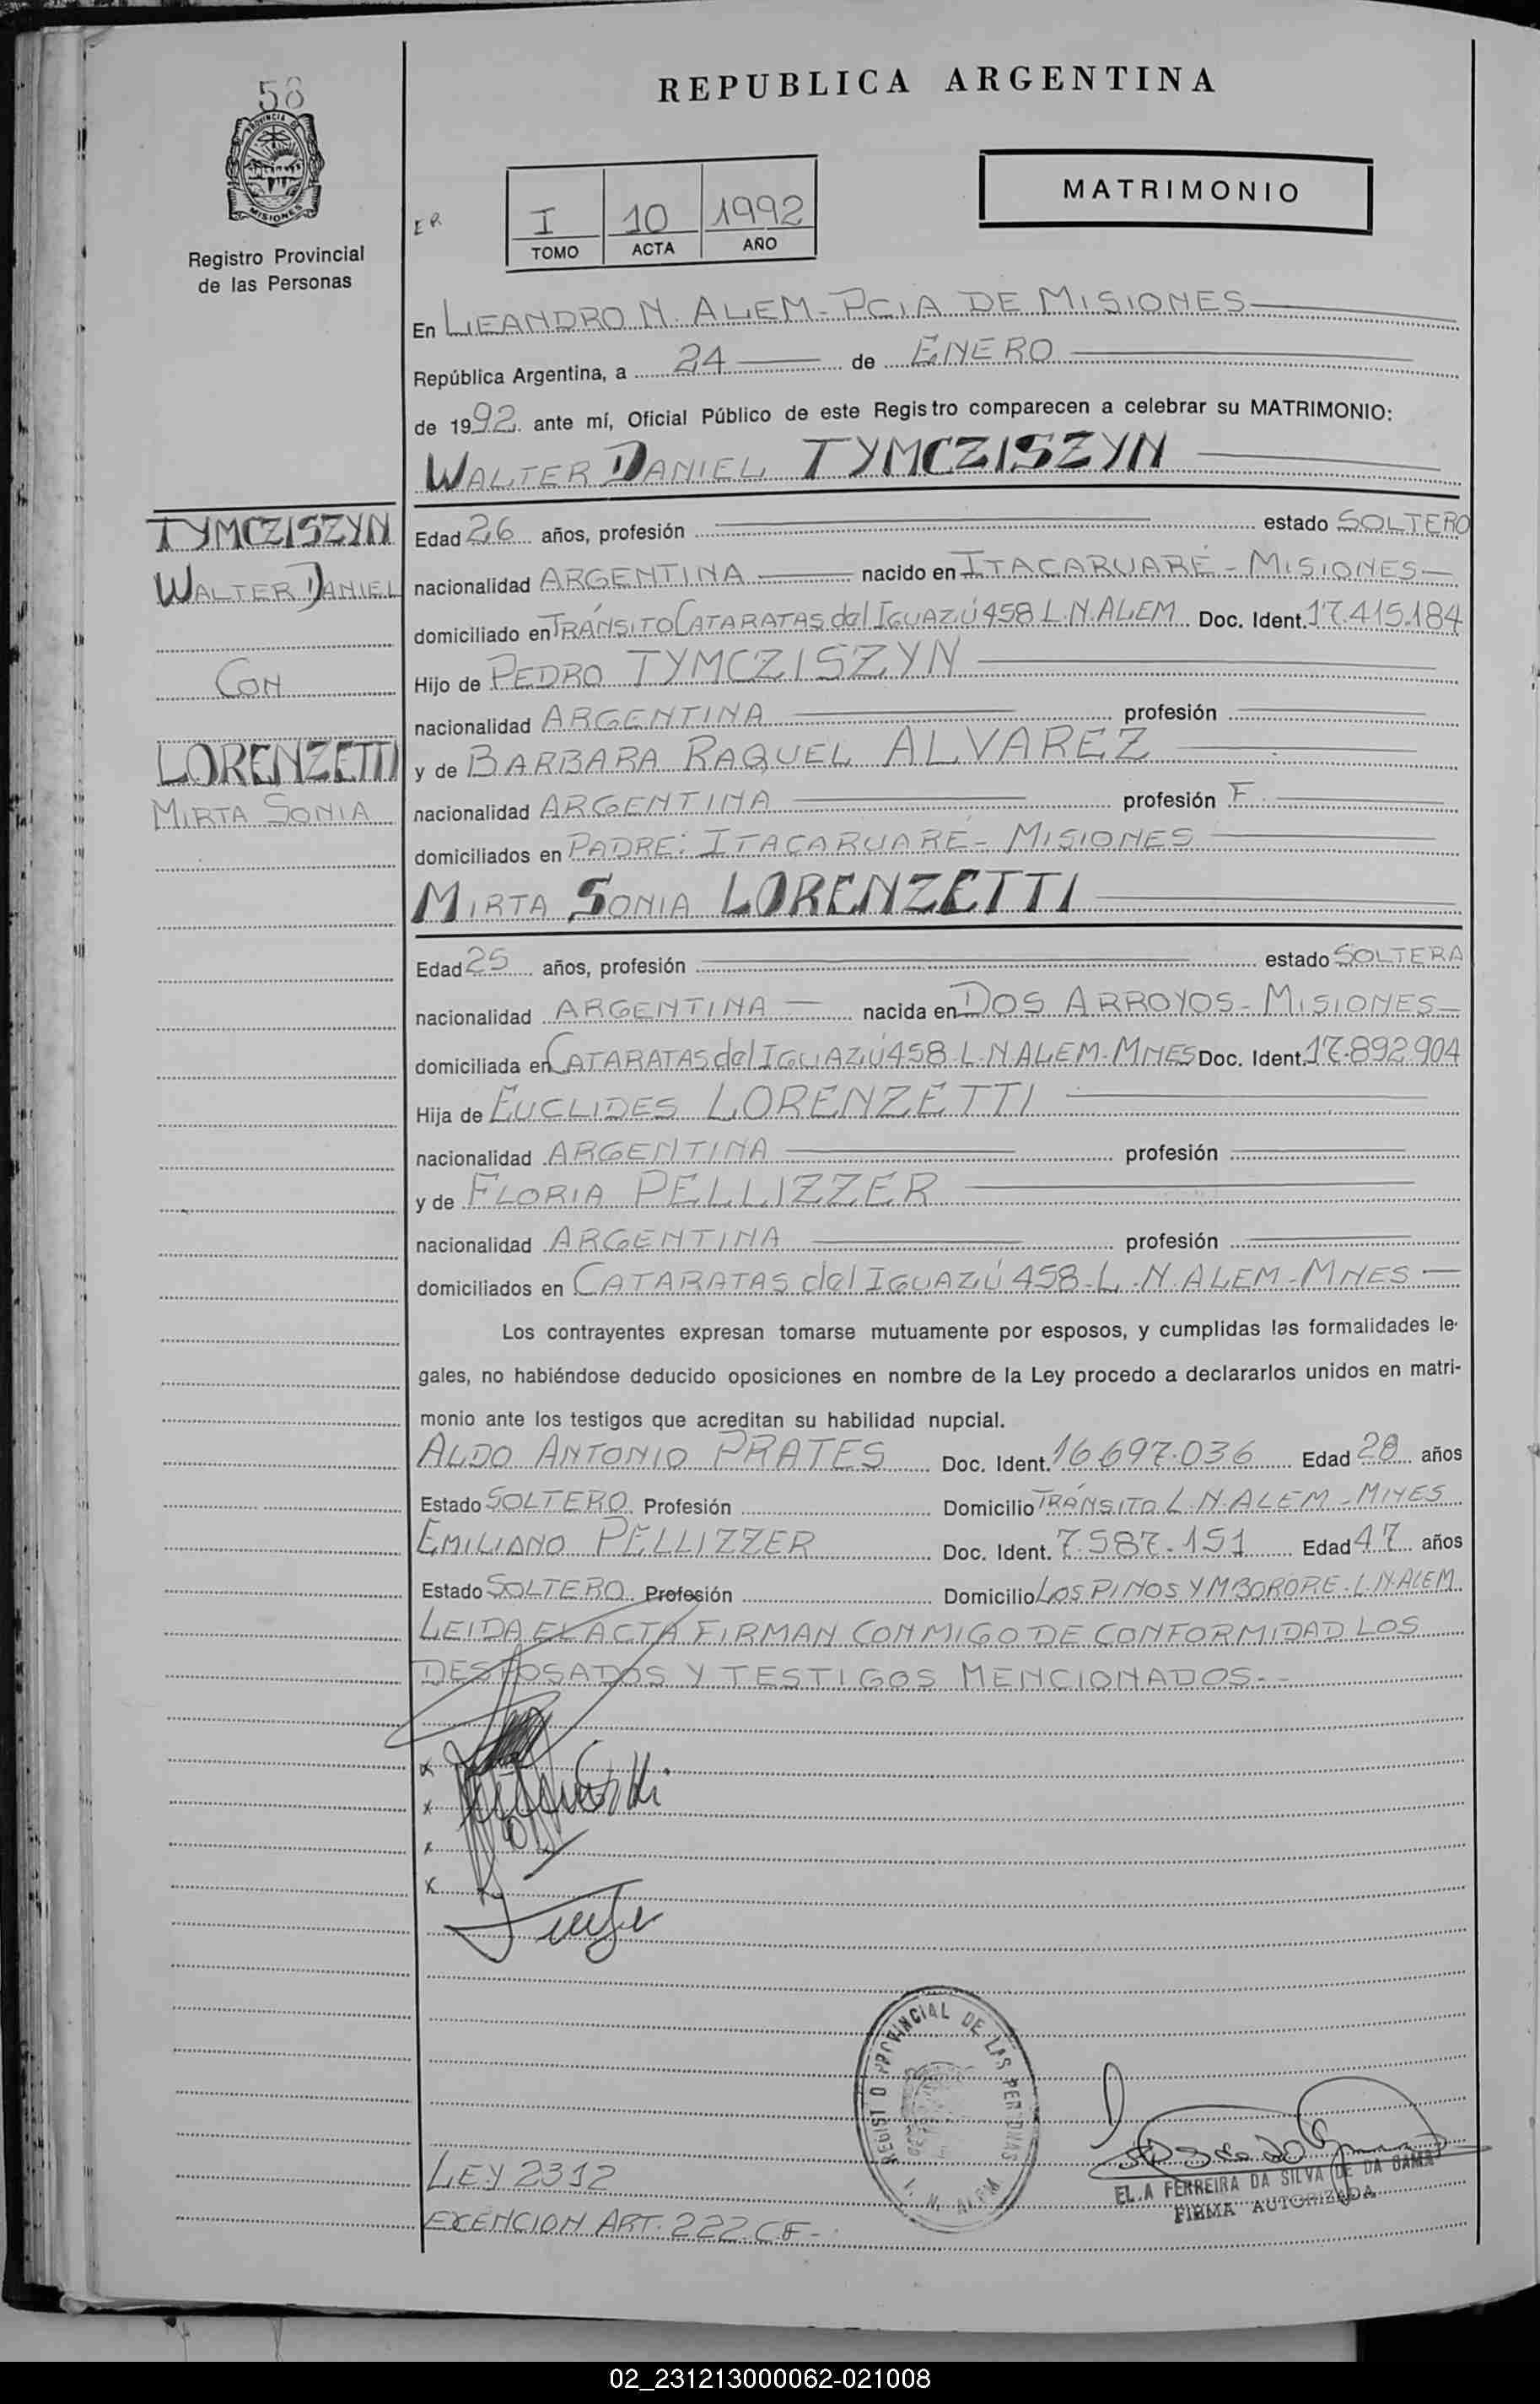 58
PROVINCIA DE
MISIONES
Registro Provincial
de las Personas
REPUBLICA ARGENTINA
MATRIMONIO
I 10 1992
TOMO ACTA AÑO
En LEANDRO N. ALEM - PCIA DE MISIONES
República Argentina, a 24 de ENERO
de 1992 ante mí, Oficial Público de este Registro comparecen a celebrar su MATRIMONIO:
WALTER DANIEL TYMCZISZYN
TYMCZISZYN
WALTER DANIEL
CON
LORENZETTI
MIRTA SONIA
Edad 26 años, profesión estado SOLTERO
nacionalidad ARGENTINA nacido en ITACARUARÉ - MISIONES
domiciliado en TRÁNSITO CATARATAS del IGUAZÚ 458 L.N. ALEM Doc. Ident. 17.415.184
Hijo de PEDRO TYMCZISZYN
nacionalidad ARGENTINA profesión
y de BARBARA RAQUEL ALVAREZ
nacionalidad ARGENTINA profesión F.
domiciliados en PADRE: ITACARUARÉ - MISIONES
MIRTA SONIA LORENZETTI
Edad 25 años, profesión estado SOLTERA
nacionalidad ARGENTINA nacida en DOS ARROYOS - MISIONES
domiciliada en CATARATAS del IGUAZÚ 458 - L.N. ALEM - MNES Doc. Ident. 17.892.904
Hija de EUCLIDES LORENZETTI
nacionalidad ARGENTINA profesión
y de FLORIA PELLIZZER
nacionalidad ARGENTINA profesión
domiciliados en CATARATAS del IGUAZÚ 458 - L.N. ALEM - MNES
Los contrayentes expresan tomarse mutuamente por esposos, y cumplidas las formalidades le-
gales, no habiéndose deducido oposiciones en nombre de la Ley procedo a declararlos unidos en matri-
monio ante los testigos que acreditan su habilidad nupcial.
ALDO ANTONIO PRATES Doc. Ident. 16.697.036 Edad 28 años
Estado SOLTERO Profesión Domicilio TRÁNSITO L.N. ALEM - MNES
EMILIANO PELLIZZER Doc. Ident. 7.587.151 Edad 47 años
Estado SOLTERO Profesión Domicilio LOS PINOS Y MBORORE - L.N. ALEM
LEIDA EL ACTA FIRMAN CONMIGO DE CONFORMIDAD LOS
DESPOSADOS Y TESTIGOS MENCIONADOS.-
x
x
x
x
REGISTRO PROVINCIAL DE LAS PERSONAS
L. N. ALEM
FERREIRA DA SILVA DE DA GAMA
FIRMA AUTORIZADA
LEY 2312
EXENCION ART. 222 C.F.-
02_231213000062-021008